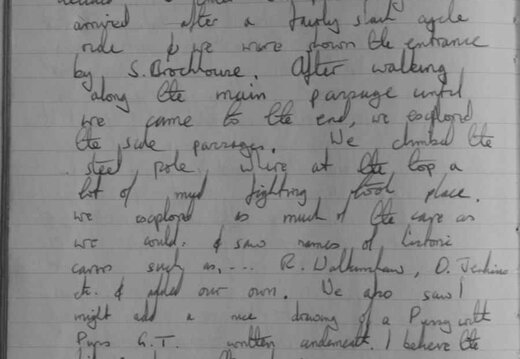 arrived after a fairly slack cycle
ride & we were shown the entrance
by S. Brockhouse. After walking
along the main passage until
we came to the end, we explored
the side passages. We climbed the
steel pole, where at the top a
lot of mud fighting took place.
we explored as much of the cave as
we could. & saw names of historic
cavers such as, ... R. Walkinshaw, D. Jenkins
etc. & added our own. We also saw I
might add a nice drawing of a Pussy with
Puss G.T. written underneath. I believe the